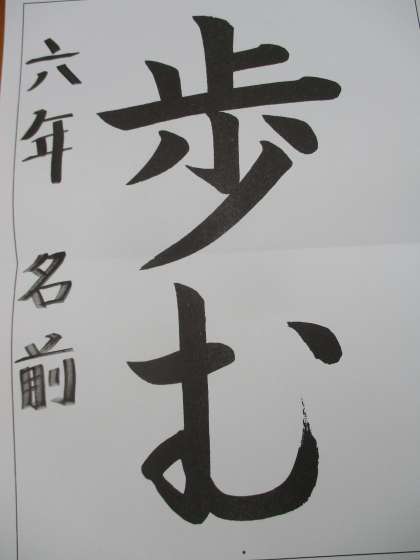 歩む
六年 名前